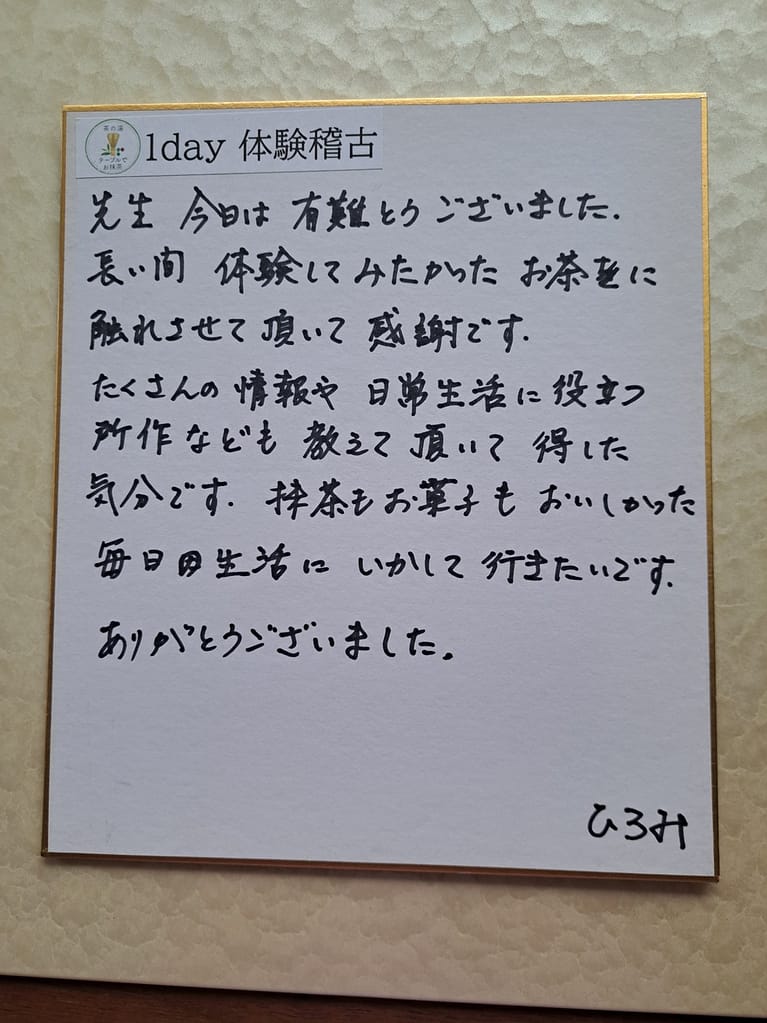 茶の湯
テーブルで
お抹茶
1day 体験稽古
先生 今日は 有難とう ございました.
長い間 体験してみたかった お茶を に
触れさせて 頂いて 感謝です.
たくさんの 情報や 日常生活に 役立つ
所作なども 教えて 頂いて 得した
気分です. 抹茶もお菓子も おいしかった
毎日の生活に いかして 行きたいです.
ありがとうございました。
ひろみ